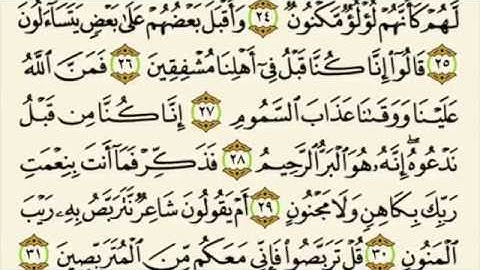 لَّهُمْ كَأَنَّهُمْ لُؤْلُؤٌ مَّكْنُونٌ ٢٤ وَأَقْبَلَ بَعْضُهُمْ عَلَىٰ بَعْضٍ يَتَسَآءَلُونَ
٢٥ قَالُوٓا۟ إِنَّا كُنَّا قَبْلُ فِىٓ أَهْلِنَا مُشْفِقِينَ ٢٦ فَمَنَّ ٱللَّهُ
عَلَيْنَا وَوَقَىٰنَا عَذَابَ ٱلسَّمُومِ ٢٧ إِنَّا كُنَّا مِن قَبْلُ
نَدْعُوهُ ۖ إِنَّهُۥ هُوَ ٱلْبَرُّ ٱلرَّحِيمُ ٢٨ فَذَكِّرْ فَمَآ أَنتَ بِنِعْمَتِ
رَبِّكَ بِكَاهِنٍ وَلَا مَجْنُونٍ ٢٩ أَمْ يَقُولُونَ شَاعِرٌ نَّتَرَبَّصُ بِهِۦ رَيْبَ
ٱلْمَنُونِ ٣٠ قُلْ تَرَبَّصُوا۟ فَإِنِّى مَعَكُم مِّنَ ٱلْمُتَرَبِّصِينَ ٣١